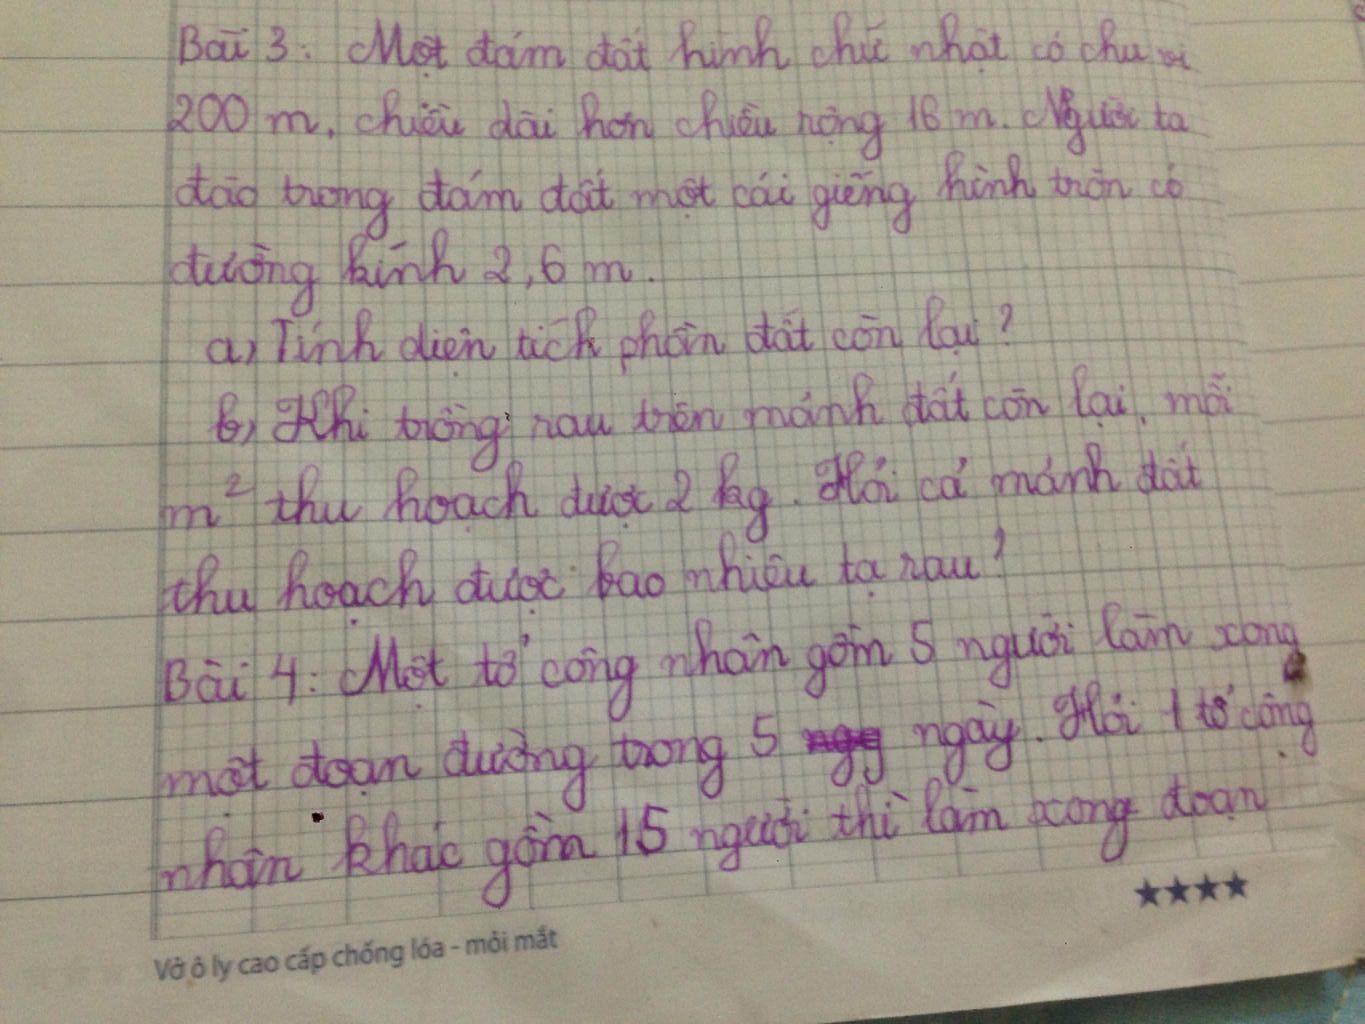 Bài 3: Một đám đất hình chữ nhật có chu vi
200 m, chiều dài hơn chiều rộng 16 m. Người ta
đào trong đám đất một cái giếng hình tròn có
đường kính 2,6 m.
a) Tính diện tích phần đất còn lại?
b) Khi trồng rau trên mảnh đất còn lại, mỗi
m² thu hoạch được 2 kg. Hỏi cả mảnh đất
thu hoạch được bao nhiêu tạ rau?
Bài 4: Một tổ công nhân gồm 5 người làm xong
một đoạn đường trong 5 ngày. Hỏi 1 tổ công
nhân khác gồm 15 người thì làm xong đoạn
★★★★
Vở ô ly cao cấp chống lóa - mỏi mắt